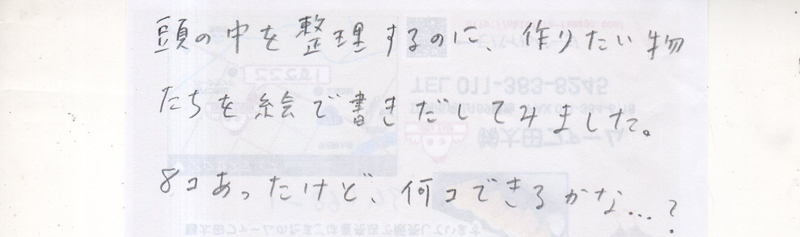 頭の中を整理するのに、作りたい物
たちを絵で書きだしてみました。
8コあったけど、何コできるかな…?